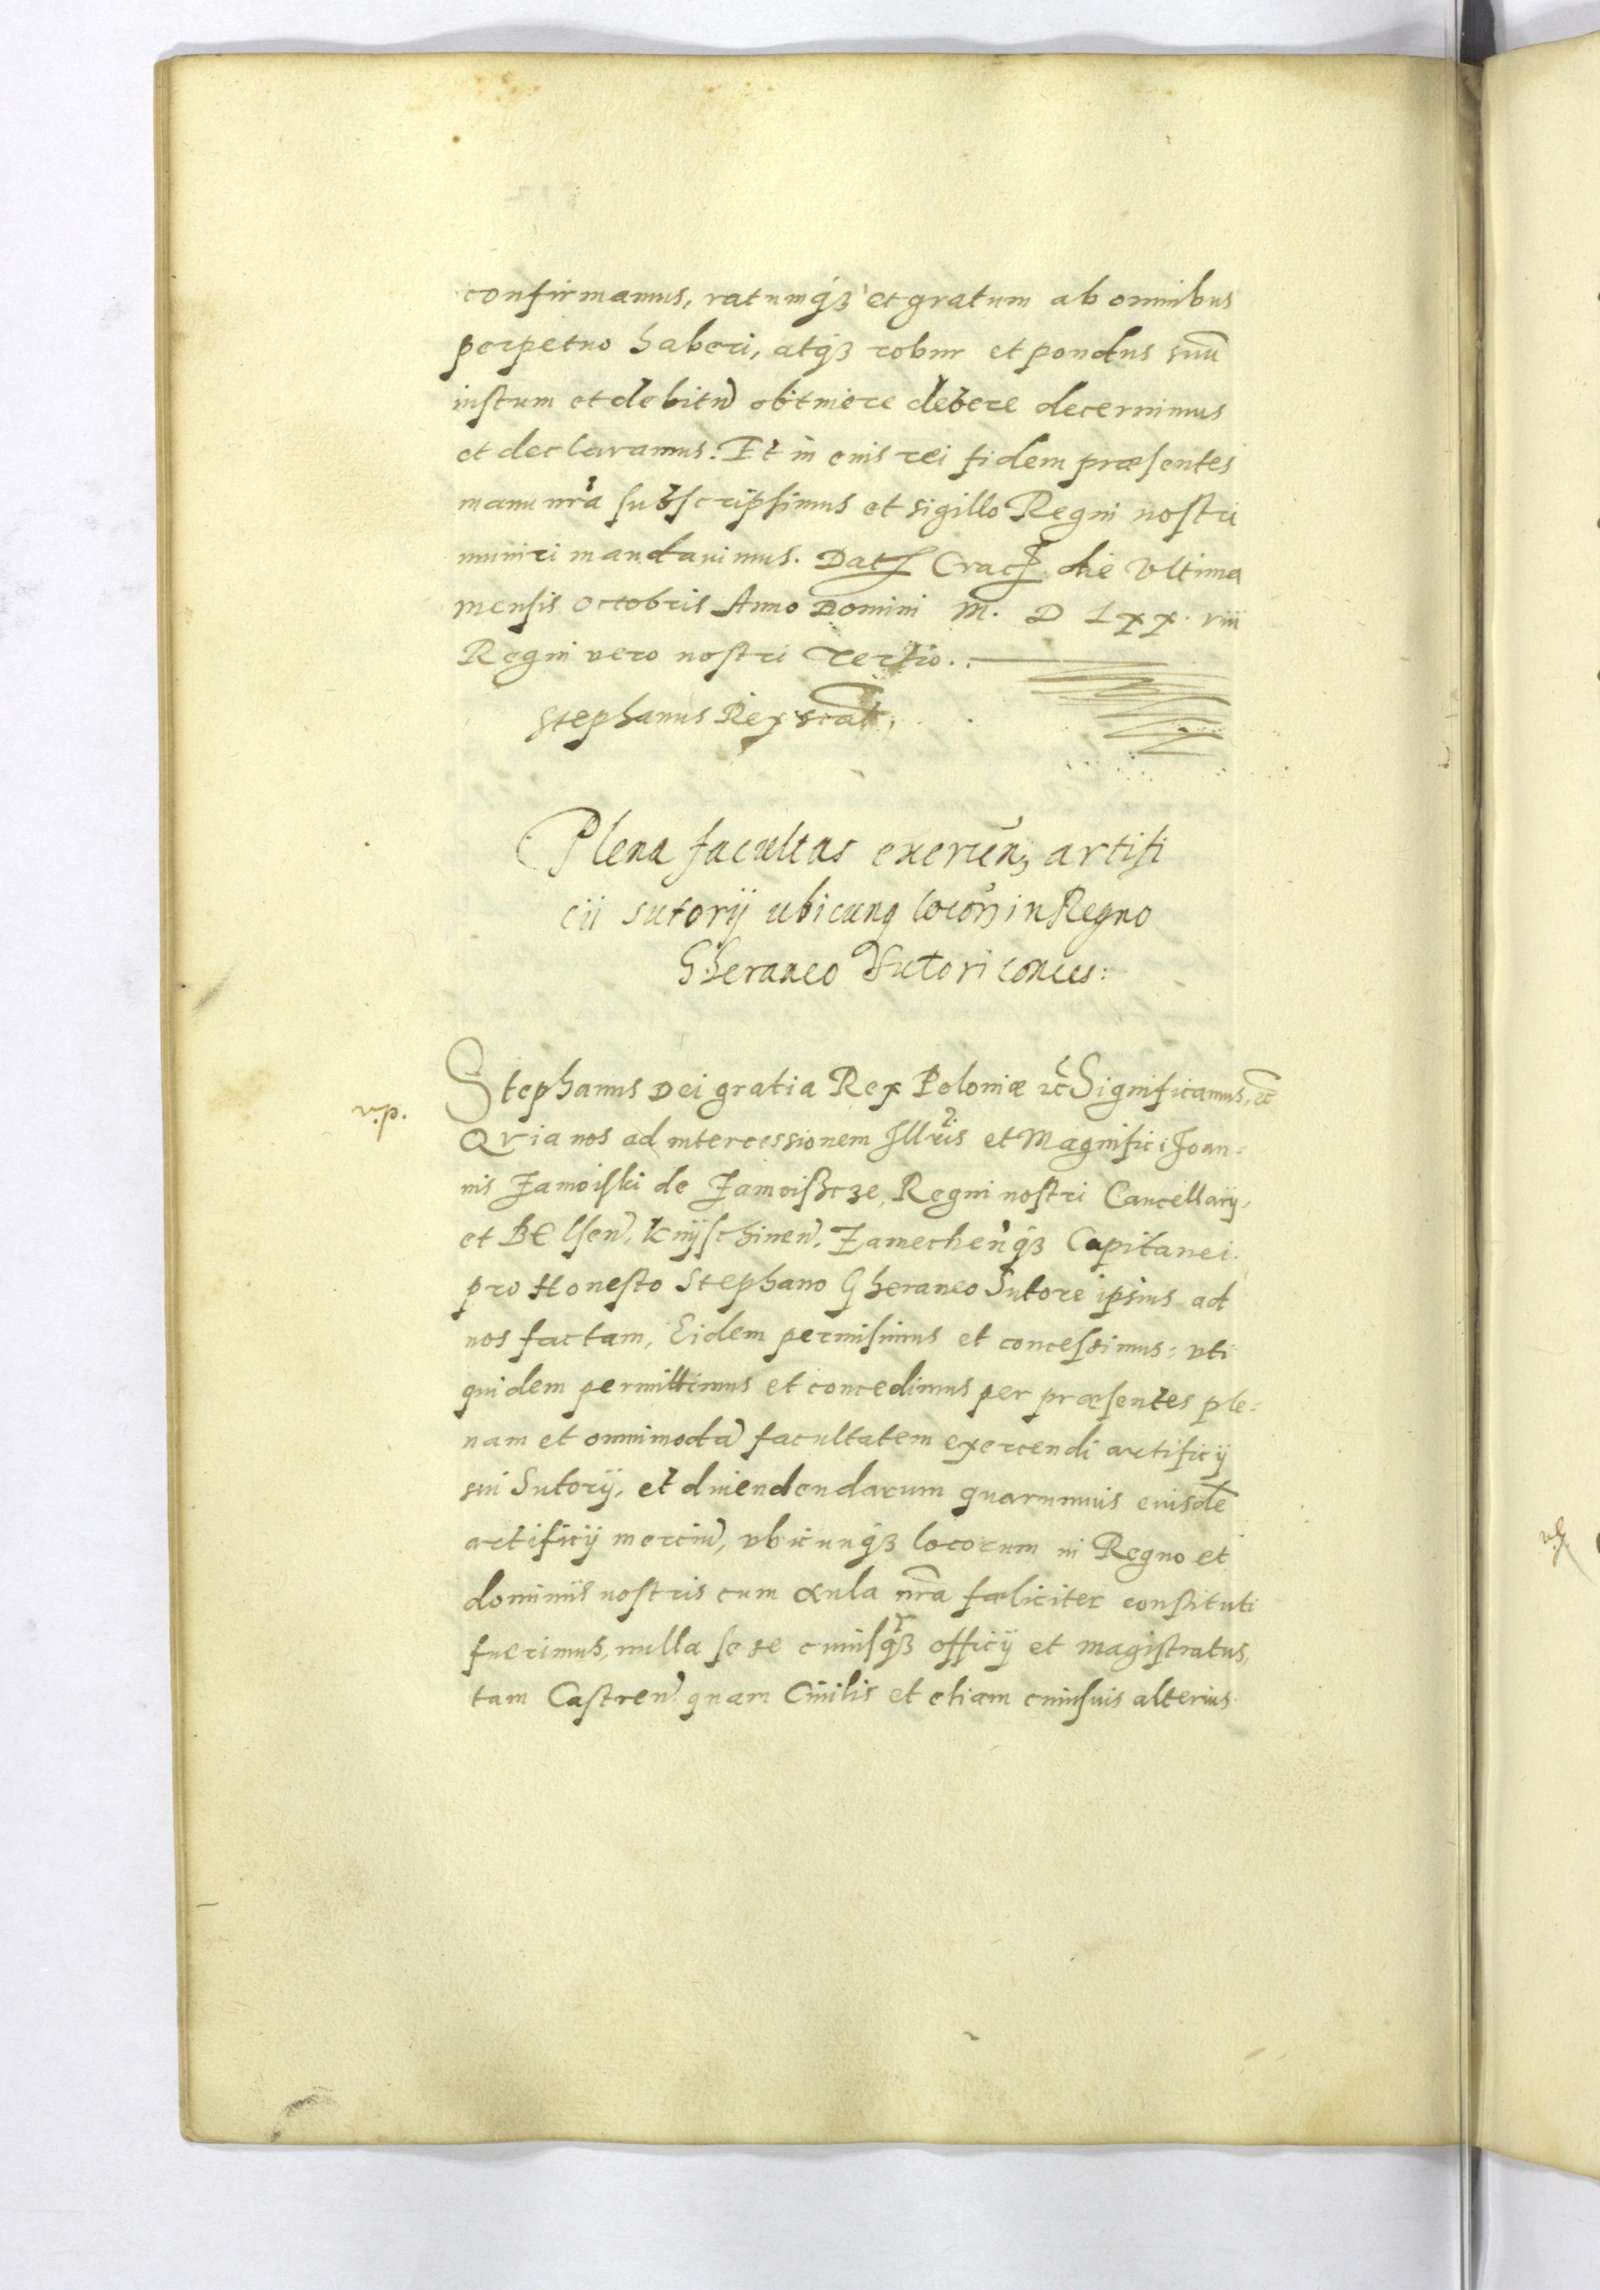 confirmamus, ratumq₃ et gratum ab omnibus
perpetuo haberi, atq₃ robur et pondus suũ
iustum et debitũ obtinere debere decernimus
et declaramus. Et in euis rei fidem præsentes
manu nrã subscripsimus et sigillo Regni nostri
muniri mandauimus. Dat Crac die vltima
mensis octobris Anno Domini M. D LXX. viii
Regni vero nostri Tertio..
Stephanus Rex scãt.
Plena facultas exercen₃ artifi
cii sutorij ubicunq locor in Regno
Gheraneo Sutori conces:
v.p.
Stephanus Dei gratia Rex Poloniæ ec̃ Significamus, ec̃
Qvia nos ad intercessionem Illris et Magnifici Joan=
nis Zamoiski de Zamoisscze, Regni nostri Cancellarij,
et BElsen̄, knijschinen̄, Zamechen̄q₃ Capitanei.
pro Honesto Stephano Gheraneo Sutore ipsius ad
nos factam, Eidem permisimus et concessimus: vti
quidem permittimus et concedimus per præsentes ple=
nam et omnimodã facultatem exercendi artificij
sui Sutorij, et diuendendarum quarumuis eiusdẽ
artificij merciũ, vbicunq₃ locorum in Regno et
dominiis nostris cum Aula nrã fæliciter constituti
fuerimus, nulla se se cuiusq₃ officij et magistratus,
tam Castren̄ quam Ciuilis et etiam cuiusuis alterius